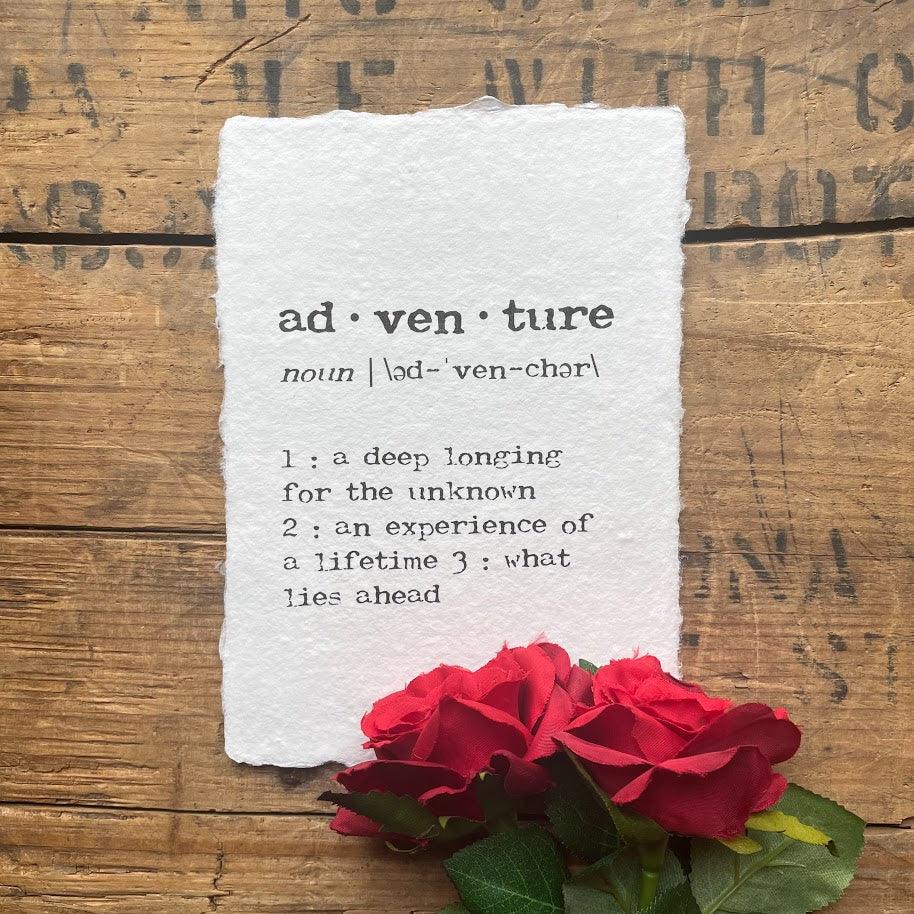 WITH C
ad · ven · ture
noun | \əd-ˈven-chər\
1 : a deep longing
for the unknown
2 : an experience of
a lifetime 3 : what
lies ahead